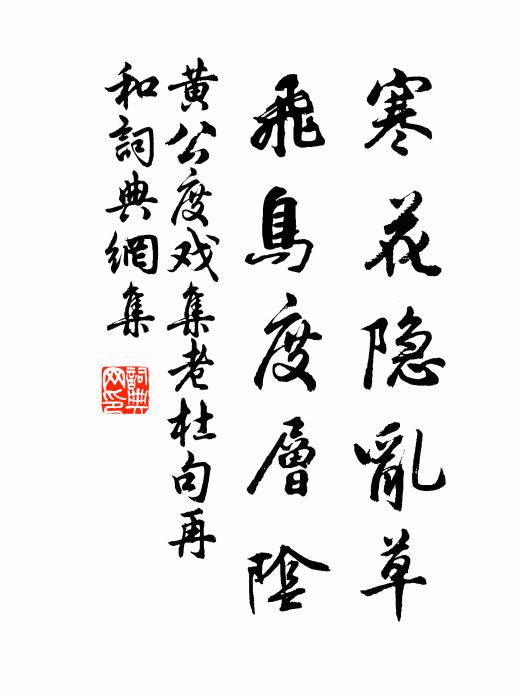 寒花隐亂草
飛鳥度層陰
黄公度戏集老杜句再
和詞典網集
詞典
网印